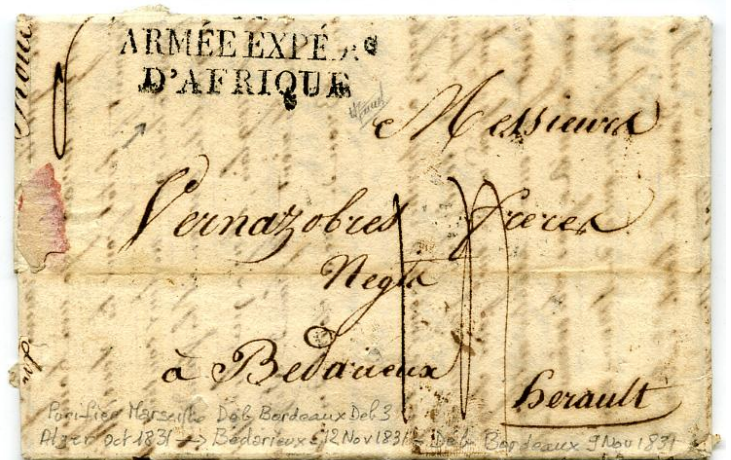 ARMÉE EXPÉ
D'AFRIQUE
Messieurs
Vernazobres freres
Negts
à Bedarieux
herault
Purifiée Marseille Deb Bordeaux Deb 3
Alger oct 1831 -> Bedarieux 12 Nov 1831 - Deb Bordeaux 9 Nov 1831